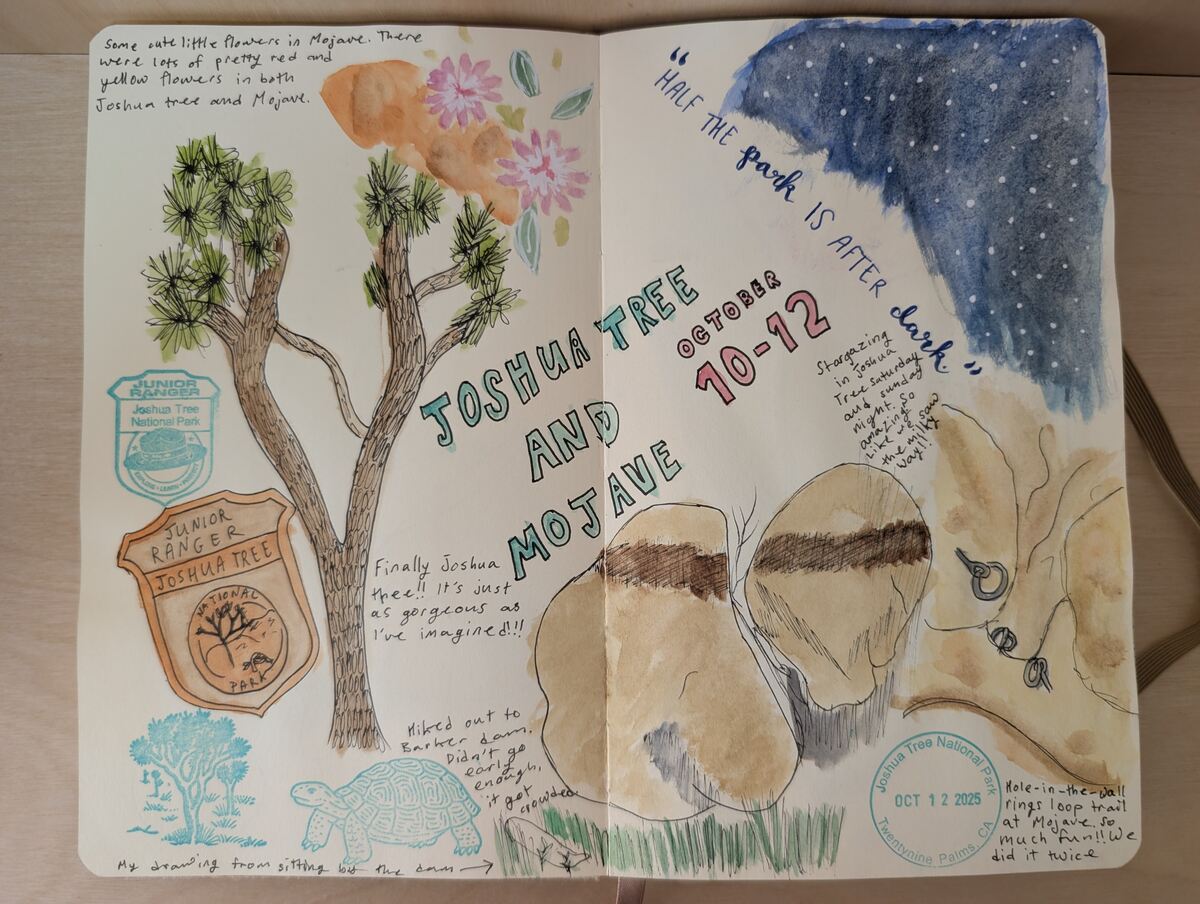 Some cute little flowers in Mojave. There
were lots of pretty red and
yellow flowers in both
Joshua tree and Mojave.
"HALF THE park IS AFTER dark."
JOSHUA TREE
AND
MOJAVE
OCTOBER
10-12
Stargazing
in Joshua
Tree saturday
and sunday
night. So
amazing!
Like we saw
the milky
way!!
JUNIOR
RANGER
Joshua Tree
National Park
EXPLORE • LEARN • PROTECT
JUNIOR
RANGER
JOSHUA TREE
NATIONAL
PARK
Finally Joshua
tree!! It's just
as gorgeous as
I've imagined!!!
Hiked out to
Barker dam.
Didn't go
early
enough,
it got
crowded.
My drawing from sitting by the dam →
Joshua Tree National Park
OCT 12 2025
Twentynine Palms, CA
Hole-in-the-wall
rings loop trail
at Mojave, so
much fun!! We
did it twice